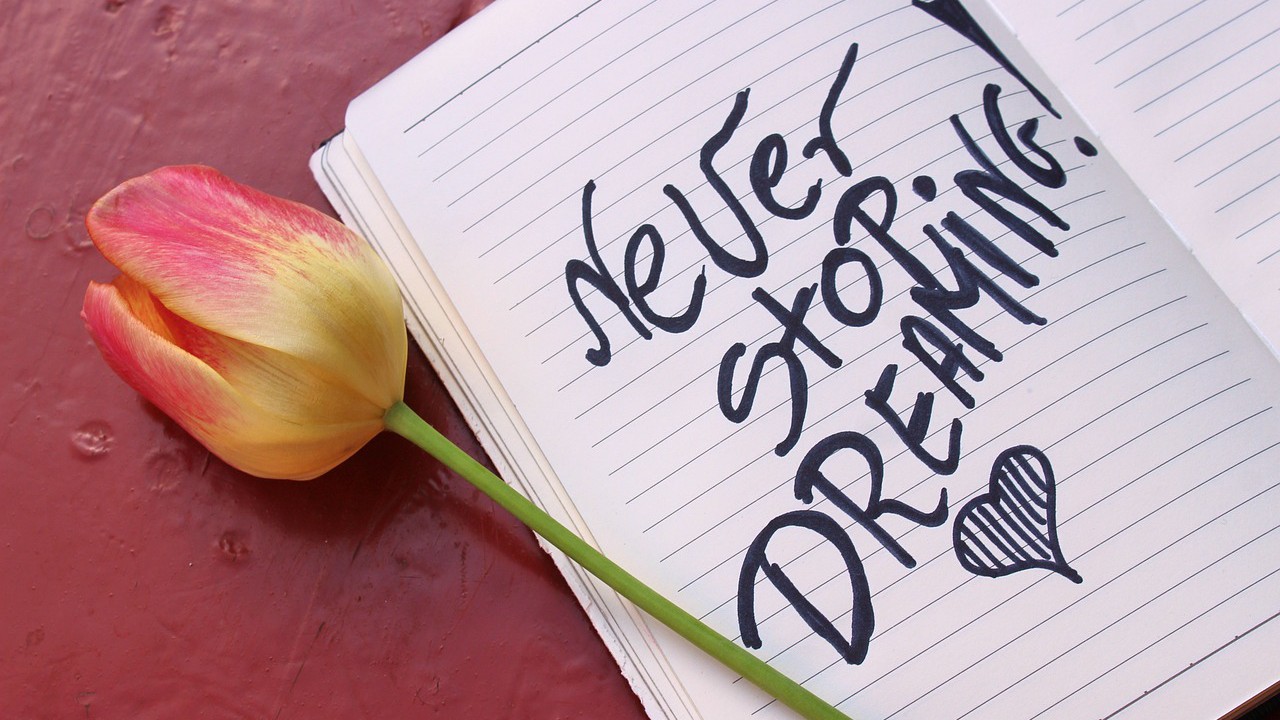 NeVer
stoP
DREAMiNG!